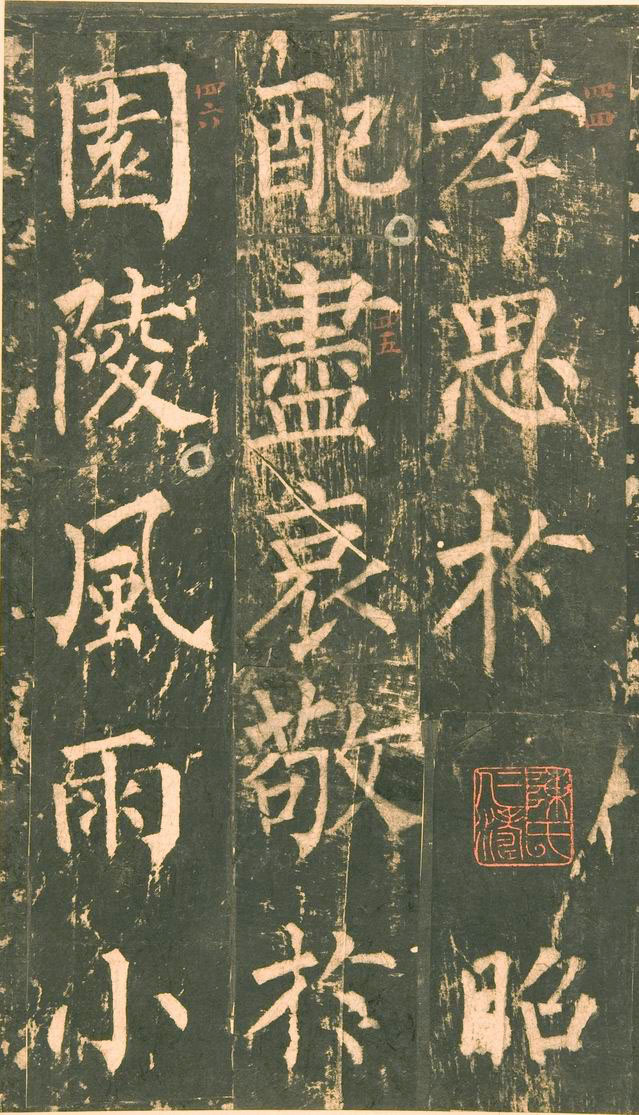 孝思於昭
四四
配盡哀敬於
四五
園陵風雨小
四六